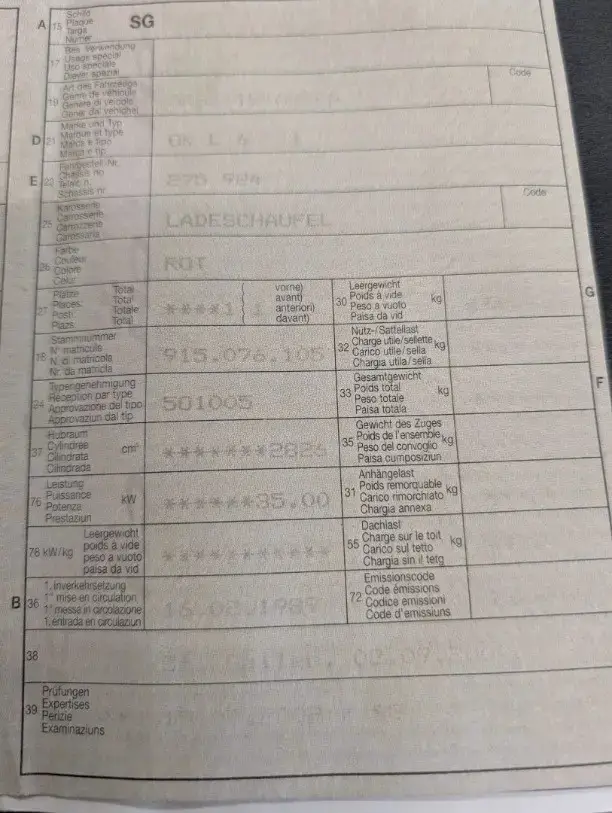 A 15 Schild
Plaque
Targa
Numer
SG
17 Bes. Verwendung
Usage spécial
Uso speciale
Diever spezial
19 Art des Fahrzeuges
Genre de véhicule
Genere di veicolo
Gener dal vehichel
Code
D 21 Marke und Typ
Marque et type
Marca e tipo
Marca e tip
E 23 Fahrgestell-Nr.
Châssis no
Telaio n.
Schassis nr.
25 Karosserie
Carrosserie
Carrozzeria
Carossaria
LADESCHAUFEL
Code
26 Farbe
Couleur
Colore
Colur
ROT
27 Plätze Total
Places Total
Posti Totale
Plazs Total
****1
vorne)
avant)
anteriori)
davant)
30 Leergewicht
Poids à vide
Peso a vuoto
Paisa da vid
kg
G
18 Stammnummer
N° matricule
N. di matricola
Nr. da matricla
915.076.105
32 Nutz-/Sattellast
Charge utile/sellette
Carico utile/sella
Chargia utila/sella
kg
24 Typengenehmigung
Réception par type
Approvazione del tipo
Approvaziun dal tip
501005
33 Gesamtgewicht
Poids total
Peso totale
Paisa totala
kg
F
37 Hubraum
Cylindrée
Cilindrata
Cilindrada
cm³
*******2826
35 Gewicht des Zuges
Poids de l'ensemble
Peso del convoglio
Paisa cumposiziun
kg
76 Leistung
Puissance
Potenza
Prestaziun
kW
******35.00
31 Anhängelast
Poids remorquable
Carico rimorchiato
Chargia annexa
kg
78 kW/kg
Leergewicht
poids à vide
peso a vuoto
paisa da vid
***********
55 Dachlast
Charge sur le toit
Carico sul tetto
Chargia sin il tetg
kg
B 36 1. Inverkehrsetzung
1re mise en circulation
1a messa in circolazione
1. entrada en circulaziun
16.02.1989
72 Emissionscode
Code émissions
Codice emissioni
Code d'emissiuns
38
39 Prüfungen
Expertises
Perizie
Examinaziuns